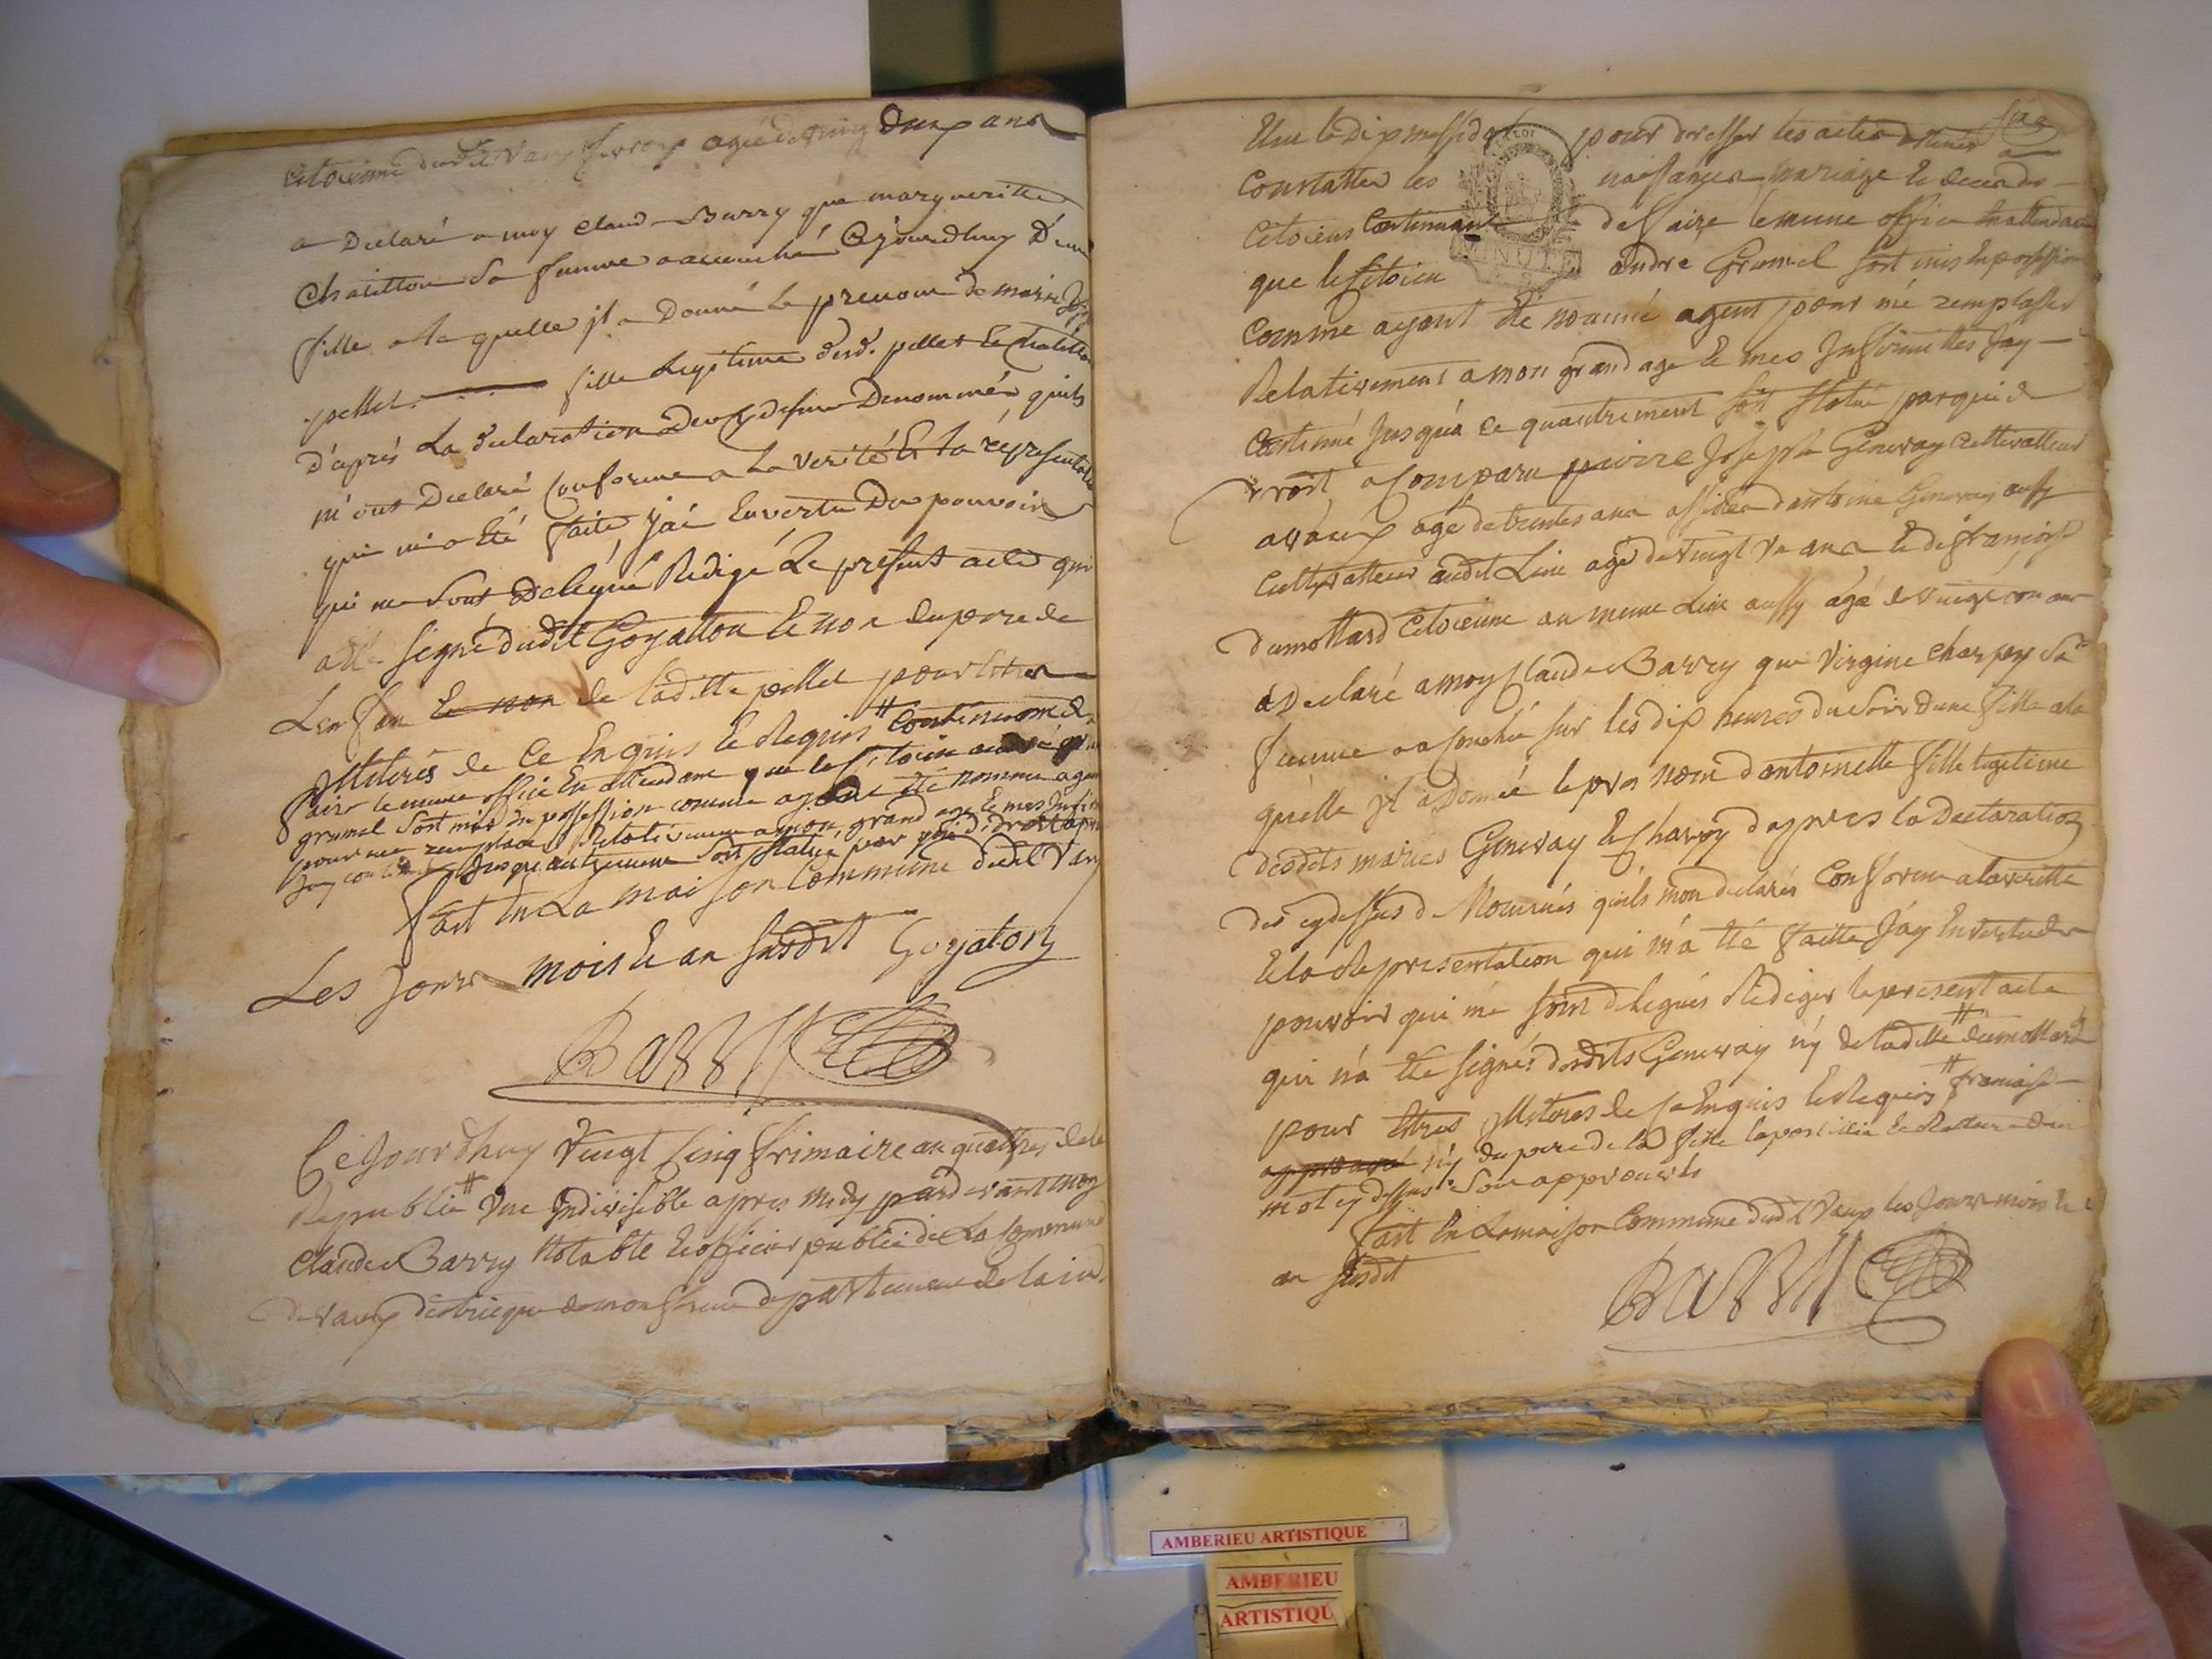 Citoienne dudit Vaux agée de vingt deux ans
a Declaré a moy Claude Barry que margueritte
Chatillon Sa femme a accouché Cejourdhuy D'une
fille a la quelle jl a Donné le prenom de marie
pellet fille Legitime desd. pellet et Chatillon
D'aprés La declaration des cy desus Denommés quils
m'ont Declaré Conforme a la verité Et la représentation
qui m'a Eté faite, j'ai En vertu Du pouvoir
qui me sont Delegué Redigé Le present acte qui
a été signé dudit Goyatton Et non du pere de
L'enfan et non de laditte pellet pour Etres
Illiterés de Ce Enquis Et Requis # Continuant de
faire le meme office En attendant que le Citoien andré
grumel Soit mis En possession comme ayant été nommé agent
pour me remplacer Relativement a mon grand age Et mes
Jay continué Jusque autrement Soit statué par qui de droit
Fait En La maison Commune dudit Vaux
Les Jour mois Et an susdit Goyaton
Barry
Ce Jourdhuy Vingt Cinq frimaire an quattre de la
Republic # Une Indivisible apres midy pardevant moy
Claude Barry Notable Et officier public de La Commune
de Vaux departement de lain
Elue le dix messidor pour dresser les actes
Constatter les naissances mariage Et deces des
Citoiens Continuant de faire le meme office En attendant
que le Citoien andré Grumel soit mis En possession
Comme ayant été nommé agent pour mé remplasser
Relativement a mon grand age Et mes Infirmittes Jay
Continué Jusqu'a ce quautrement soit statué par qui de
droit a Comparu pierre Joseph Genevay Cultivatteur
a Vaux agé de trentes ans assisté d'antoine Genevay aussy
Cultivatteur audit Lieu agé de Vingt ans Et de françoise
Dumottard Citoienne au meme Lieu aussy agée de vingt ans
a Declaré a moy Claude Barry que Virgine Charpy Sa
femme a acouché sur les dix heures du soir d'une fille a la
quelle jl a Donné le pre nom d'antoinette fille legitime
desdits mariés Genevay Et Charpy d'apres la Declaration
des cy dessus quils mon declarés Conforme a la veritté
Et la Representation qui m'a été faitte Jay En vertu du
pouvoir qui me sont delegués Rediger le present acte
qui n'a été signés desdits Genevay n'y de laditte # dumottard
pour Etres Illiteres de ce Enquis Et Requis # francoise
approuvé n'y du pere de la fille
mot cy dessus Son approuvés
Fait En La maison Commune dudit Vaux les Jour mois Et
an susdit
Barry
MINUTE
AMBERIEU ARTISTIQUE
AMBERIEU
ARTISTIQU